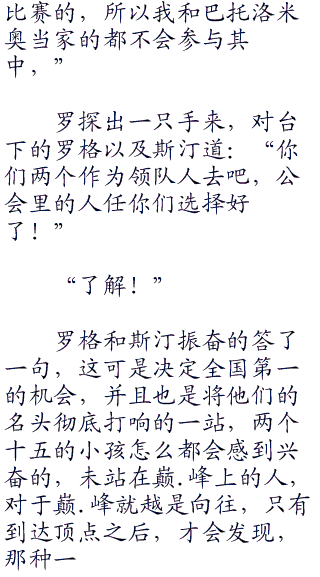 比赛的，所以我和巴托洛米
奥当家的都不会参与其
中，”
罗探出一只手来，对台
下的罗格以及斯汀道：“你
们两个作为领队人去吧，公
会里的人任你们选择好
了！”
“了解！”
罗格和斯汀振奋的答了
一句，这可是决定全国第一
的机会，并且也是将他们的
名头彻底打响的一站，两个
十五的小孩怎么都会感到兴
奋的，未站在巅.峰上的人，
对于巅.峰就越是向往，只有
到达顶点之后，才会发现，
那种一